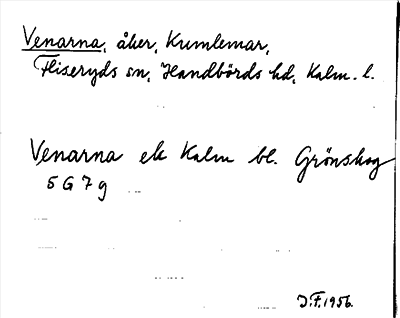 Venarna, åker, Kumlemar,
Fliseryds sn, Handbörds hd, Kalm. l.
Venarna ek Kalm bl. Grönskog
5 G 7 g
J.F. 1956.